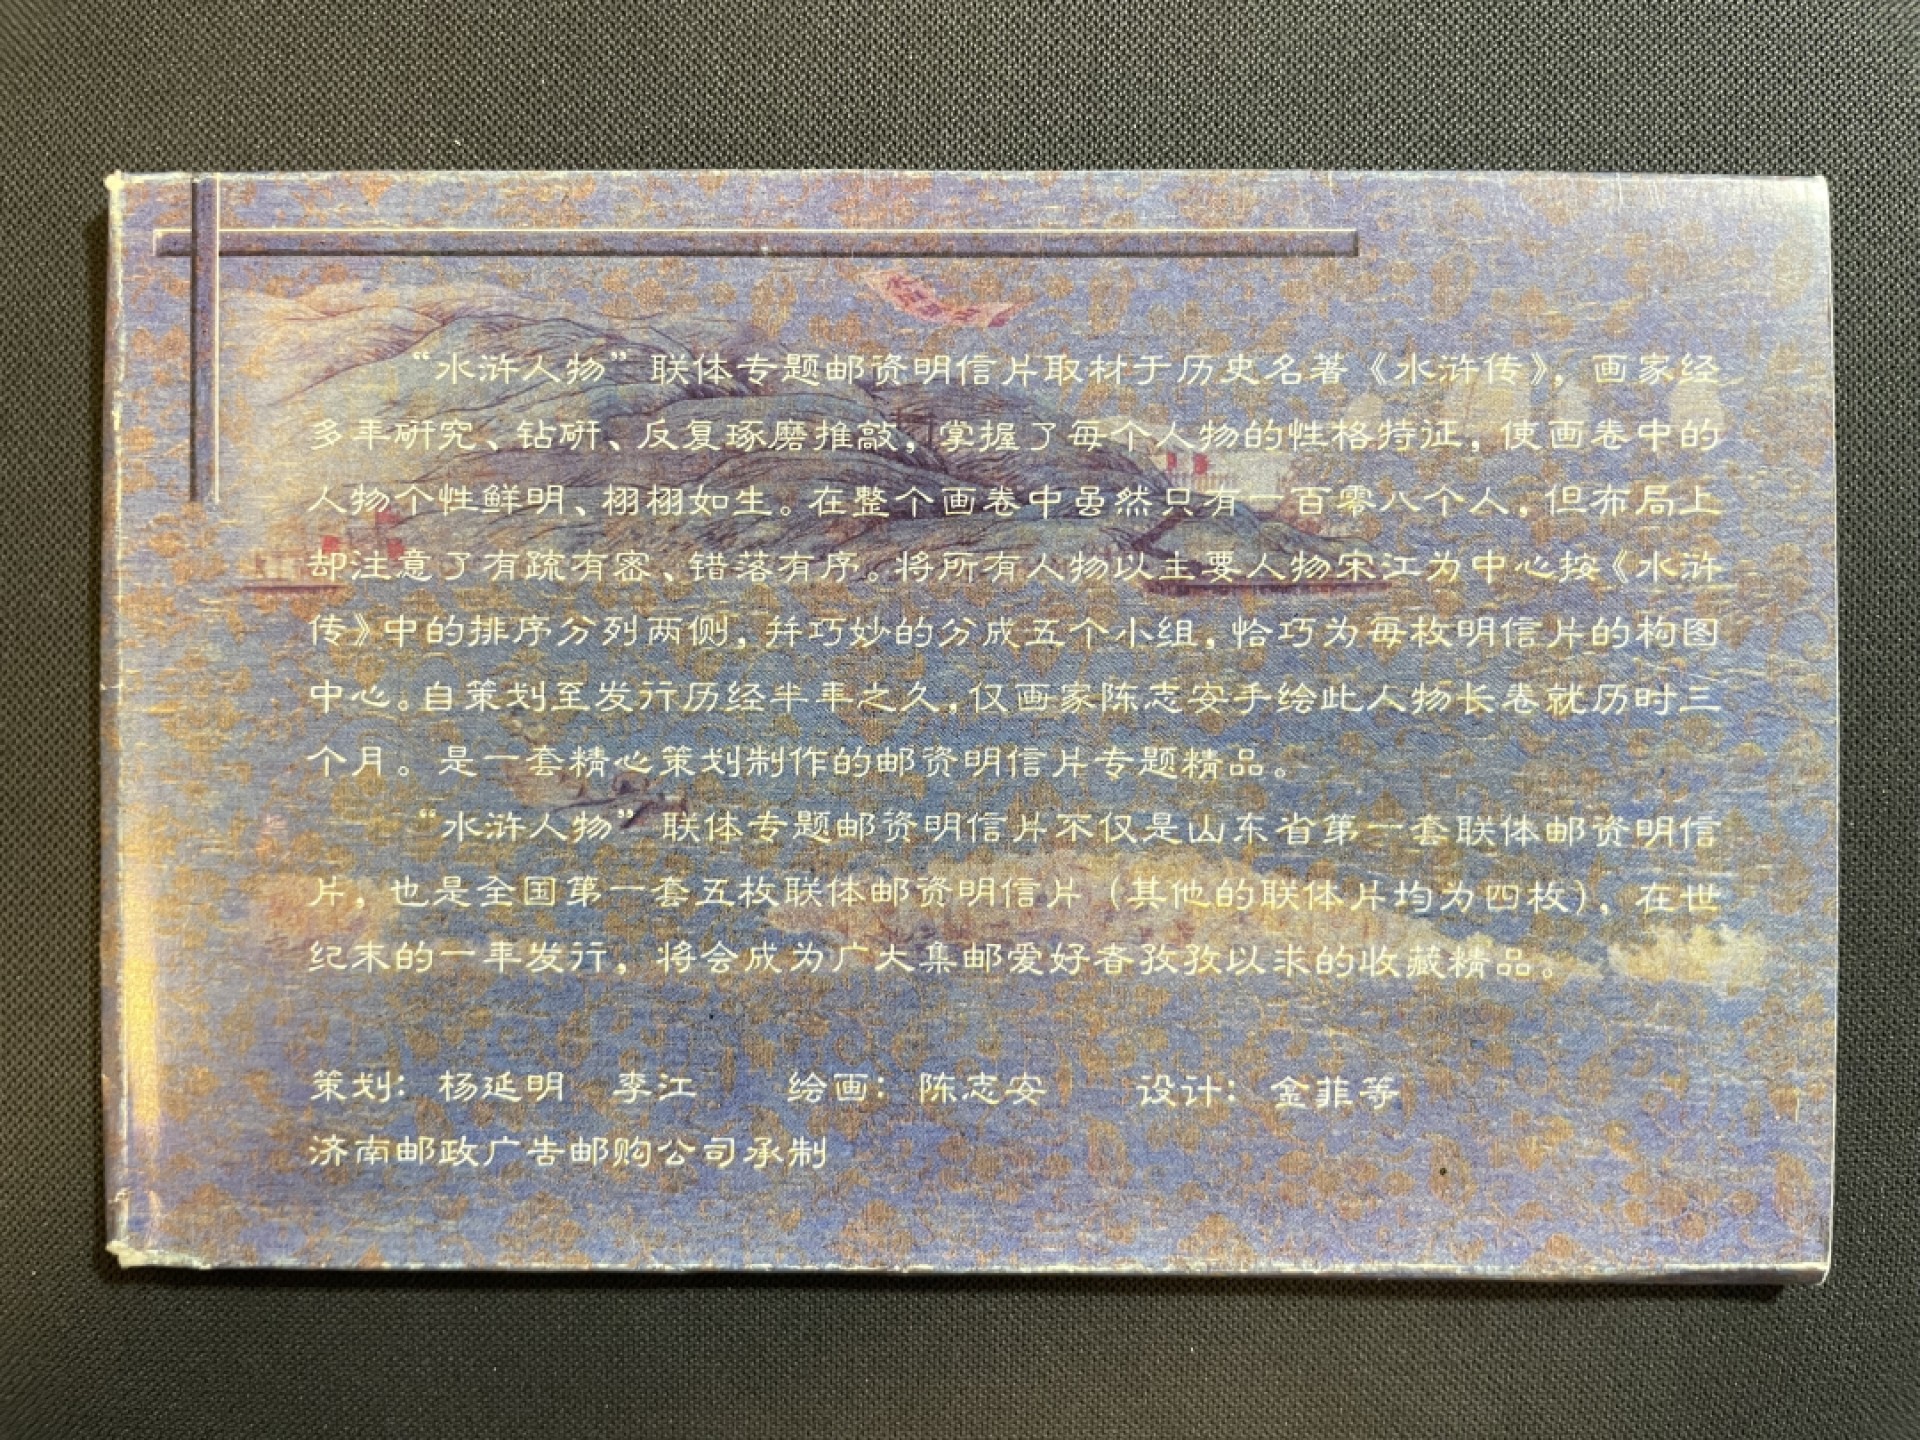 “水浒人物”联体专题邮资明信片取材于历史名著《水浒传》，画家经
多年研究、钻研、反复琢磨推敲，掌握了每个人物的性格特征，使画卷中的
人物个性鲜明、栩栩如生。在整个画卷中虽然只有一百零八个人，但布局上
却注意了有疏有密、错落有序。将所有人物以主要人物宋江为中心按《水浒
传》中的排序分列两侧，并巧妙的分成五个小组，恰巧为每枚明信片的构图
中心。自策划至发行历经半年之久，仅画家陈志安手绘此人物长卷就历时三
个月。是一套精心策划制作的邮资明信片专题精品。
“水浒人物”联体专题邮资明信片不仅是山东省第一套联体邮资明信
片，也是全国第一套五枚联体邮资明信片（其他的联体片均为四枚），在世
纪末的一年发行，将会成为广大集邮爱好者孜孜以求的收藏精品。
策划：杨延明 李江 绘画：陈志安 设计：金菲等
济南邮政广告邮购公司承制